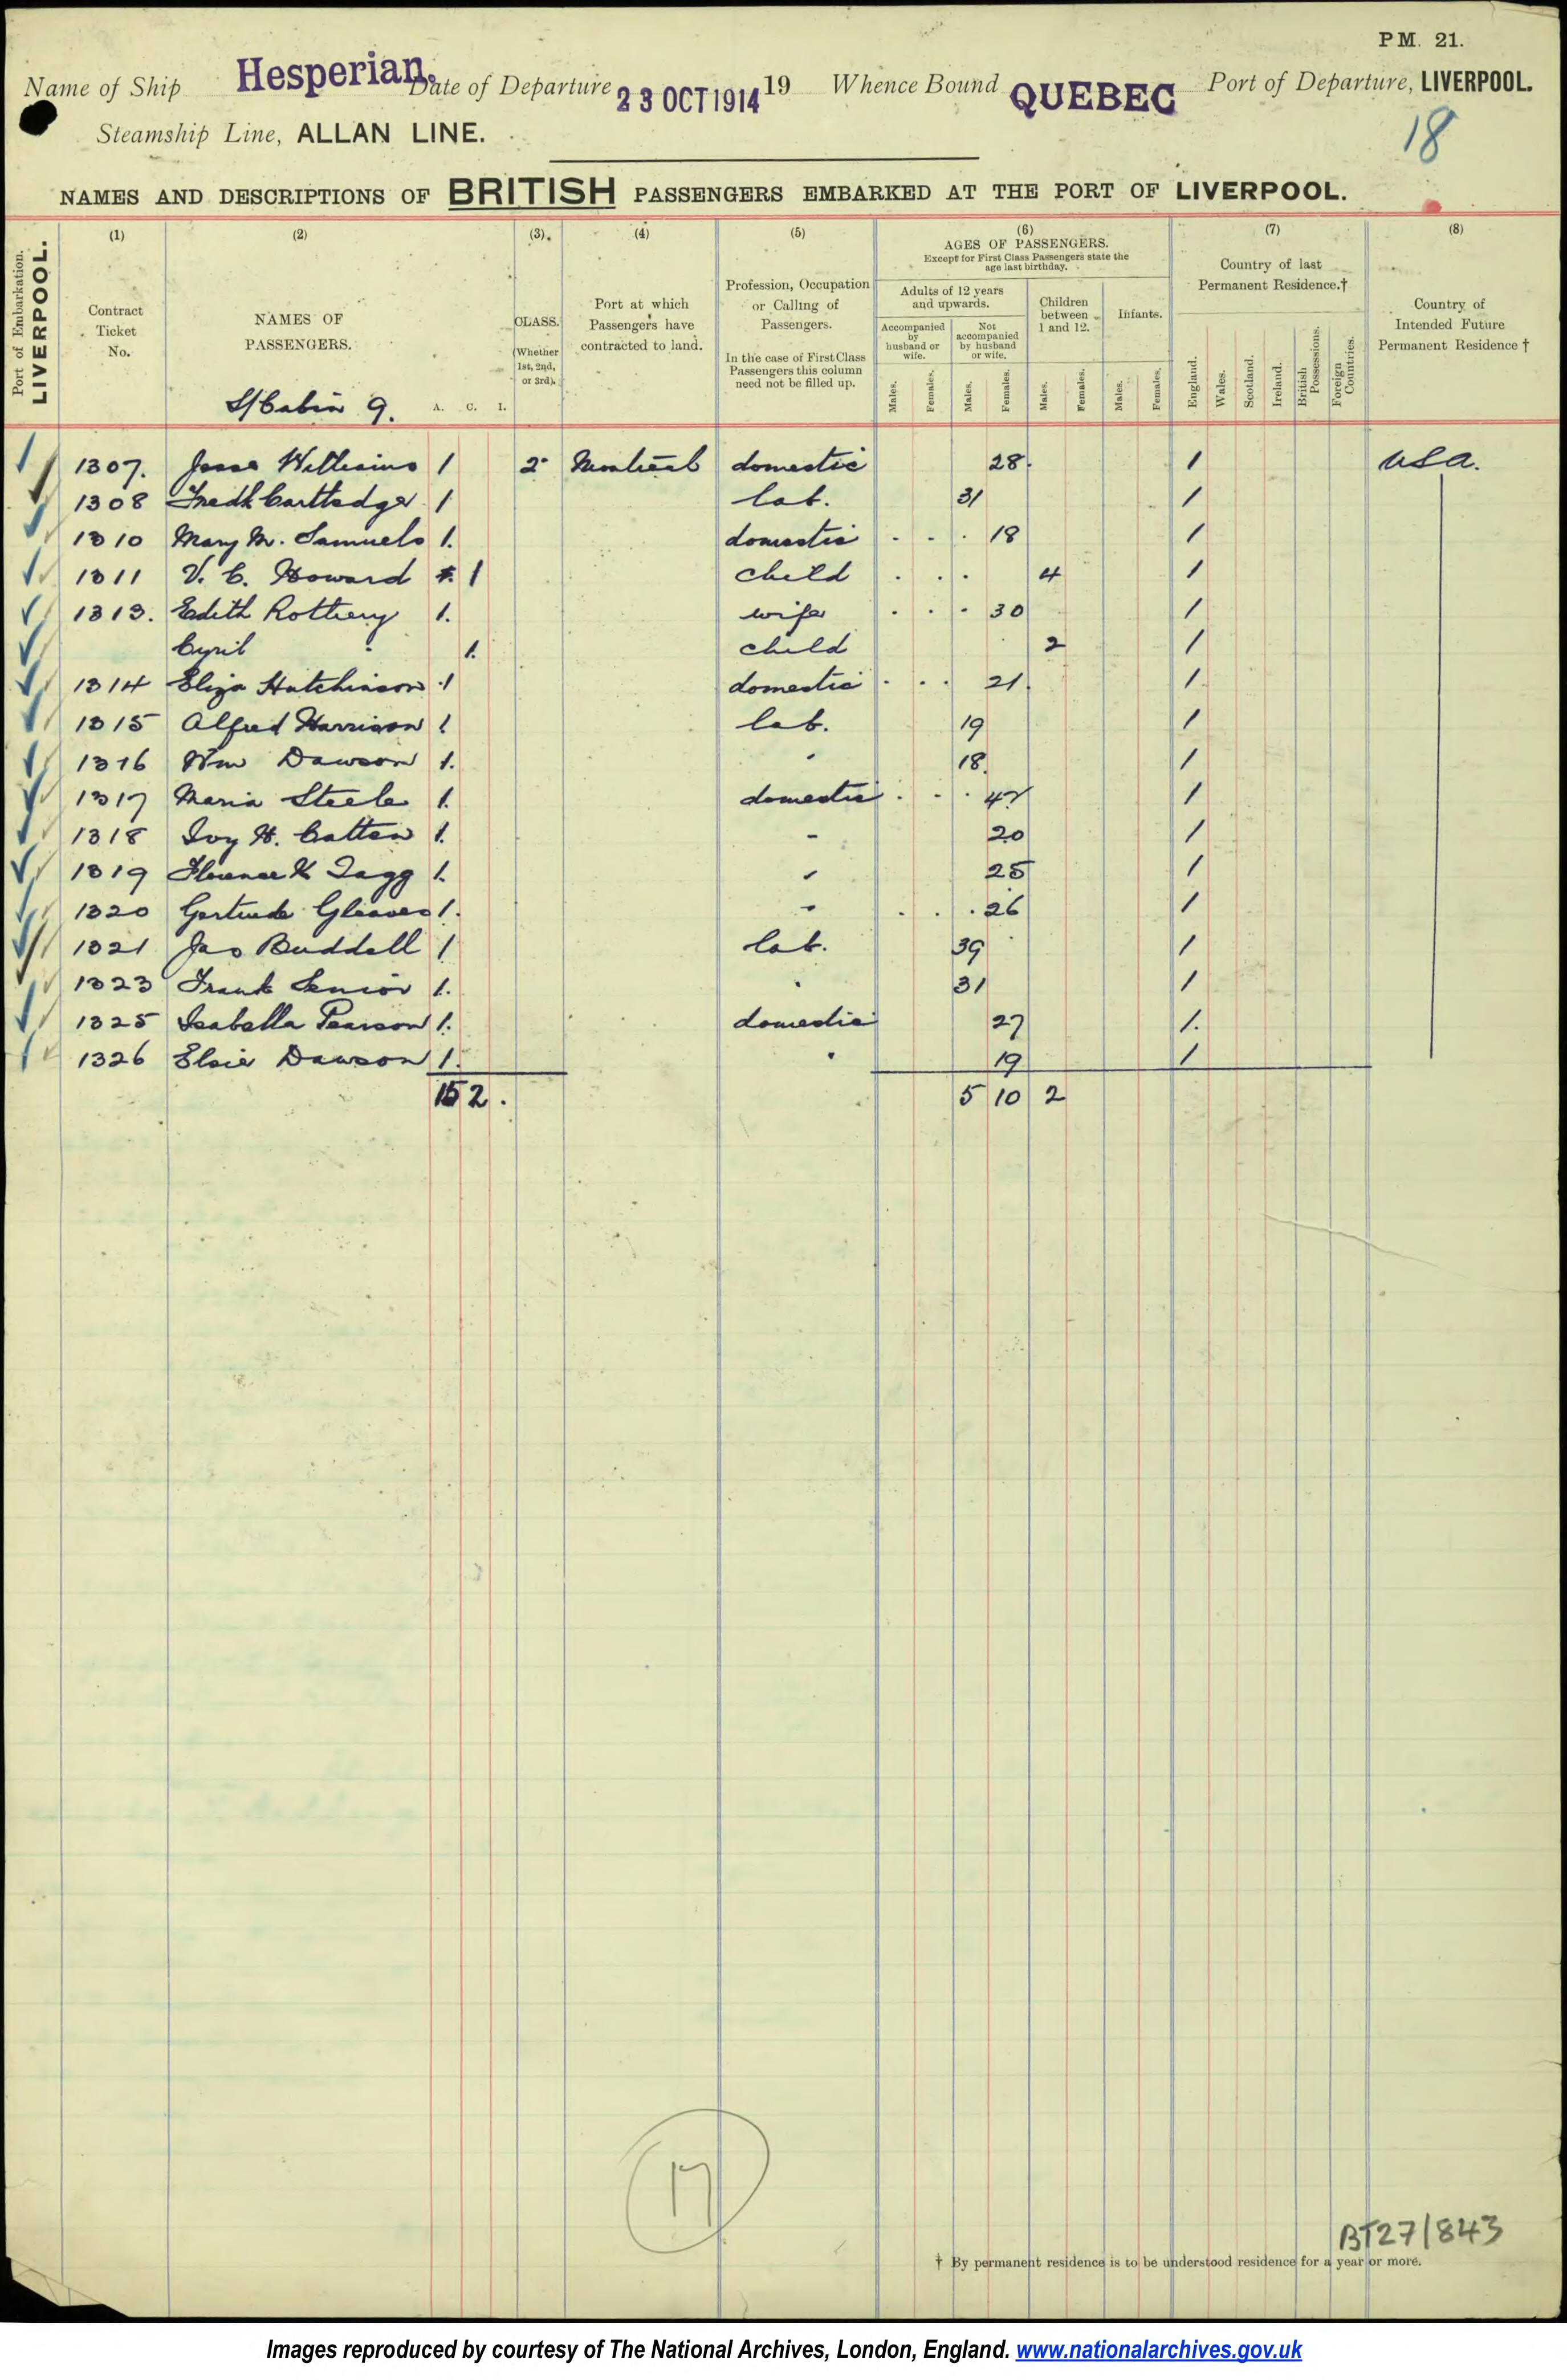 P.M. 21.
Name of Ship Hesperian. Date of Departure 23 OCT 1914 19 Whence Bound QUEBEC Port of Departure, LIVERPOOL.
Steamship Line, ALLAN LINE.
18
NAMES AND DESCRIPTIONS OF BRITISH PASSENGERS EMBARKED AT THE PORT OF LIVERPOOL.
Port of Embarkation. LIVERPOOL.
(1) (2) (3). (4) (5) (6) (7) (8)
Contract Ticket No.
NAMES OF PASSENGERS.
S/Cabin 9. A. C. I.
CLASS. (Whether 1st, 2nd, or 3rd).
Port at which Passengers have contracted to land.
Profession, Occupation or Calling of Passengers.
In the case of First Class Passengers this column need not be filled up.
AGES OF PASSENGERS.
Except for First Class Passengers state the age last birthday.
Adults of 12 years and upwards.
Accompanied by husband or wife.
Not accompanied by husband or wife.
Children between 1 and 12.
Infants.
Males. Females. Males. Females. Males. Females. Males. Females.
Country of last Permanent Residence.†
England. Wales. Scotland. Ireland. British Possessions. Foreign Countries.
Country of Intended Future Permanent Residence †
1307. Williams 1 2 Montreal domestic 28. 1 USA.
1308 Fredk Cartledge 1 lab. 31 1
1310 Mary M. Samuels 1. domestic 18 1
1311 V. C. Howard 1 child 4 1
1313. Edith Rothery 1. wife 30 1
Cyril 1. child 2 1
1314 Eliza Hutchinson 1 domestic 21. 1
1315 Alfred Harrison 1 lab. 19 1
1316 Wm Dawson 1. " 18. 1
1317 Maria Steele 1. domestic 1
1318 Ivy H. Catten 1. " 20 1
1319 Florence K Tagg 1. " 25 1
1320 Gertrude Gleaves 1. " 26 1
1321 Jas Buddell 1 lab. 39 1
1323 Frank Senior 1. " 31 1
1325 Isabella Pearson 1. domestic 27 1.
1326 Elsie Dawson 1. " 19 1
15 2. 5 10 2
17
BT27/843
† By permanent residence is to be understood residence for a year or more.
Images reproduced by courtesy of The National Archives, London, England. www.nationalarchives.gov.uk